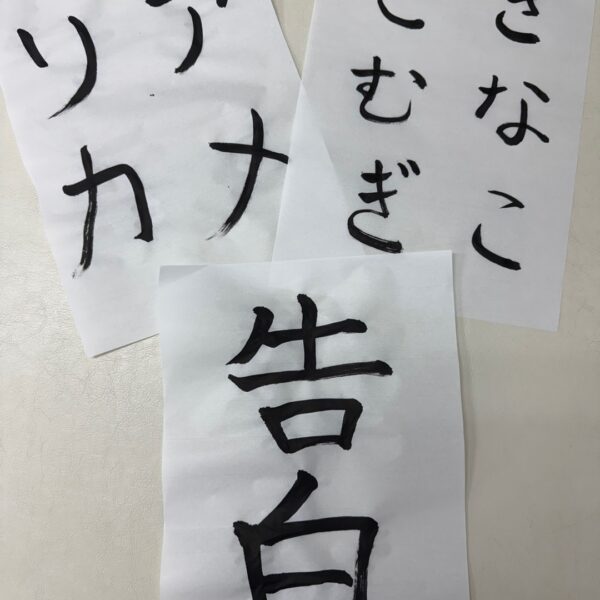 きなこ
こむぎ
デナ
リカ
告白